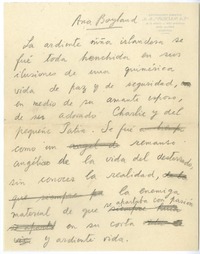 Ana Boyland
La ardiente niña irlandesa se
fué toda henchida en sus
ilusiones de una quimérica
vida de paz y de seguridad,
en medio de su amante esposo,
de su adorado Charlie y del
pequeño Patri. Se fué
como un remanso
angélico de la vida del desterrado,
sin conocer la realidad,
la enemiga
material de que apartaba con pasión
en su corta
y ardiente vida.